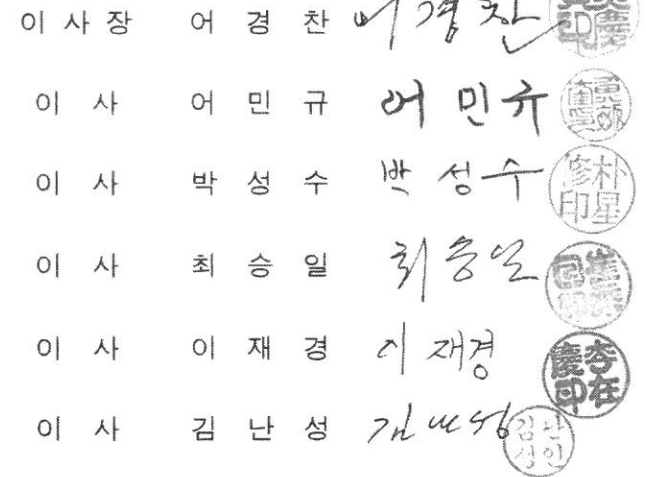 이 사 장 어 경 찬 어경찬
이 사 어 민 규 어 민 규
이 사 박 성 수 박 성 수 朴星修印
이 사 최 승 일 최승일
이 사 이 재 경 이 재경 李在慶印
이 사 김 난 성 김난성 김난성인